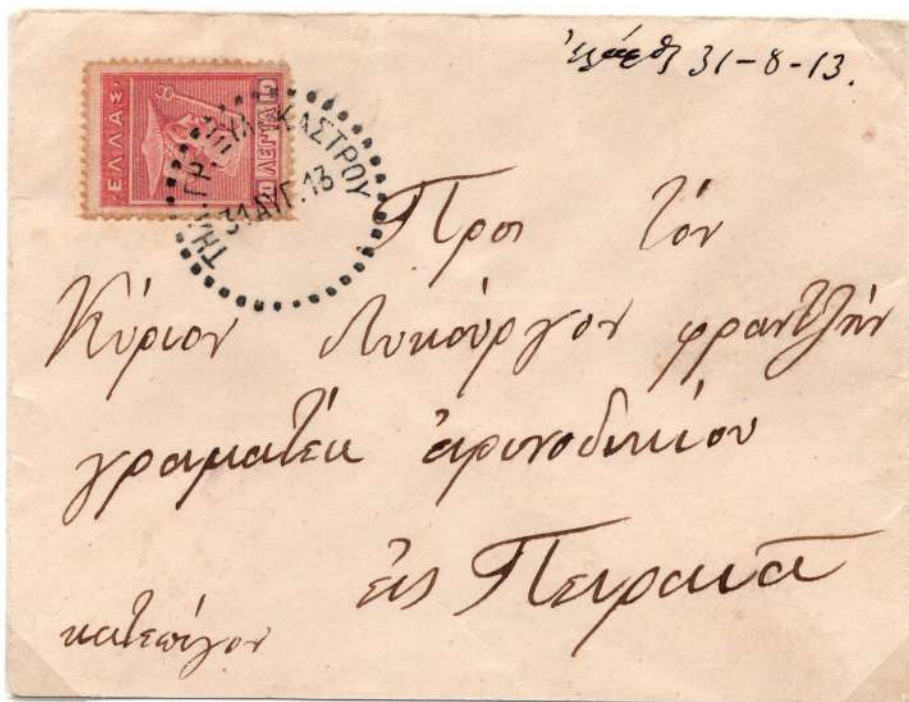 ἐλήφθη 31-8-13.
ΕΛΛΑΣ
ΛΕΠΤΑ
ΤΗΛ. ΓΡ. ΞΥΛΟΚΑΣΤΡΟΥ
31 ΑΥΓ. 13
Προς τόν
Κύριον Λυκούργον φραντζήν
γραμματέα εἰρηνοδικίου
εἰς Πειραιᾶ
κατεπίγον